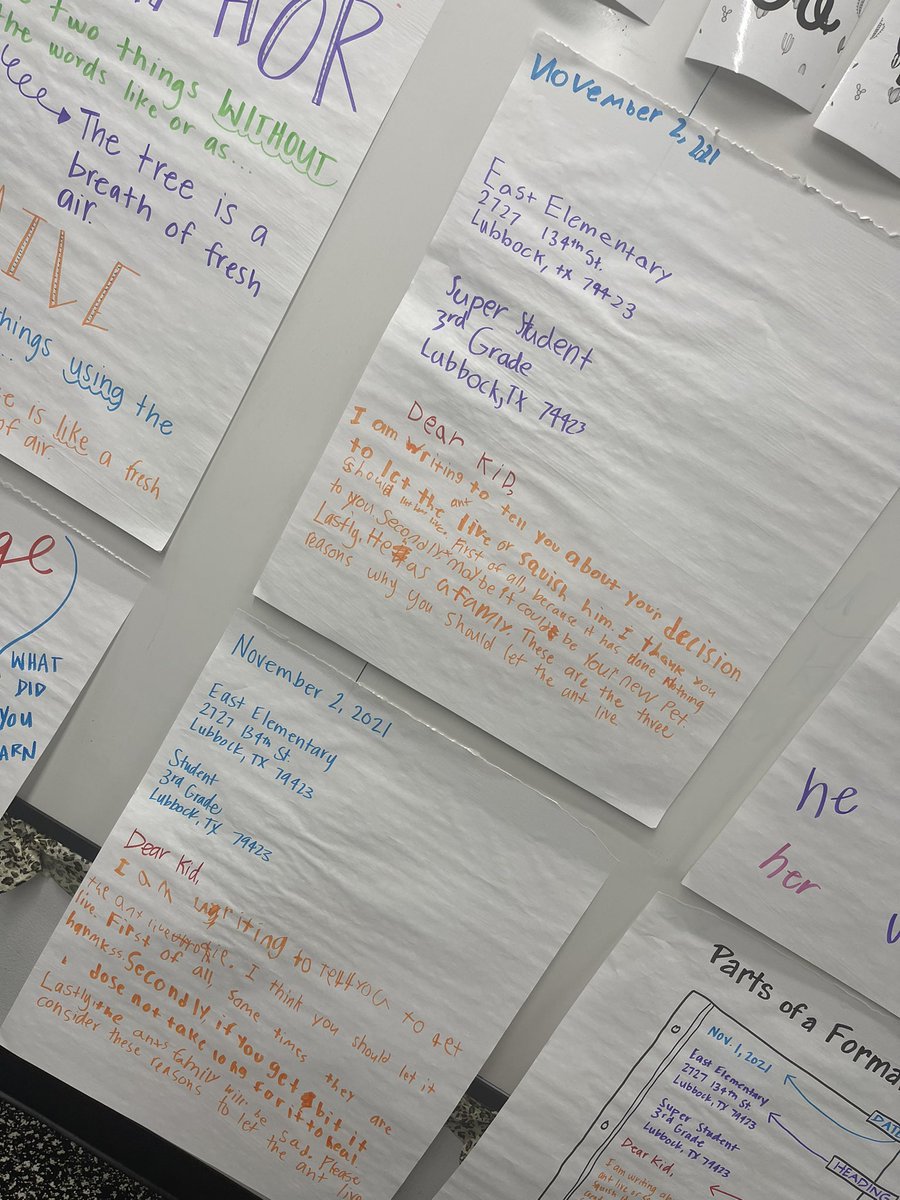 HOR
two things WITHOUT
the words like or as...
The tree is a
breath of fresh
air.
things using the
is like a fresh
of air.
November 2, 2021
East Elementary
2727 134th St.
Lubbock, tx 79423
Super Student
3rd Grade
Lubbock, TX 79423
Dear Kid,
I am writing to tell you about your decision
to let the ant live or squish him. I thank you
should let him live. First of all, because it has done nothing
to you. Secondly maybe it could be your new pet.
Lastly. He has a family. These are the three
reasons why you should let the ant live
WHAT
DID
YOU
November 2, 2021
East Elementary
2727 134th St.
Lubbock, TX 79423
Student
3rd Grade
Lubbock, TX 79423
Dear Kid,
I am writing to tell you to get
the ant live. I think you should let it
live. First of all, some times they are
harmkss. Secondly, if you get bit it
dose not take long for it to heal
Lastly, the ants family will be sad. Please
consider these reasons to let the ant live
he
her
Parts of a
Nov. 1, 2021
East Elementary
2727 134th St.
Lubbock, TX 79423
Super Student
3rd Grade
Lubbock, TX 79423
Dear Kid,
DATE
HEADING